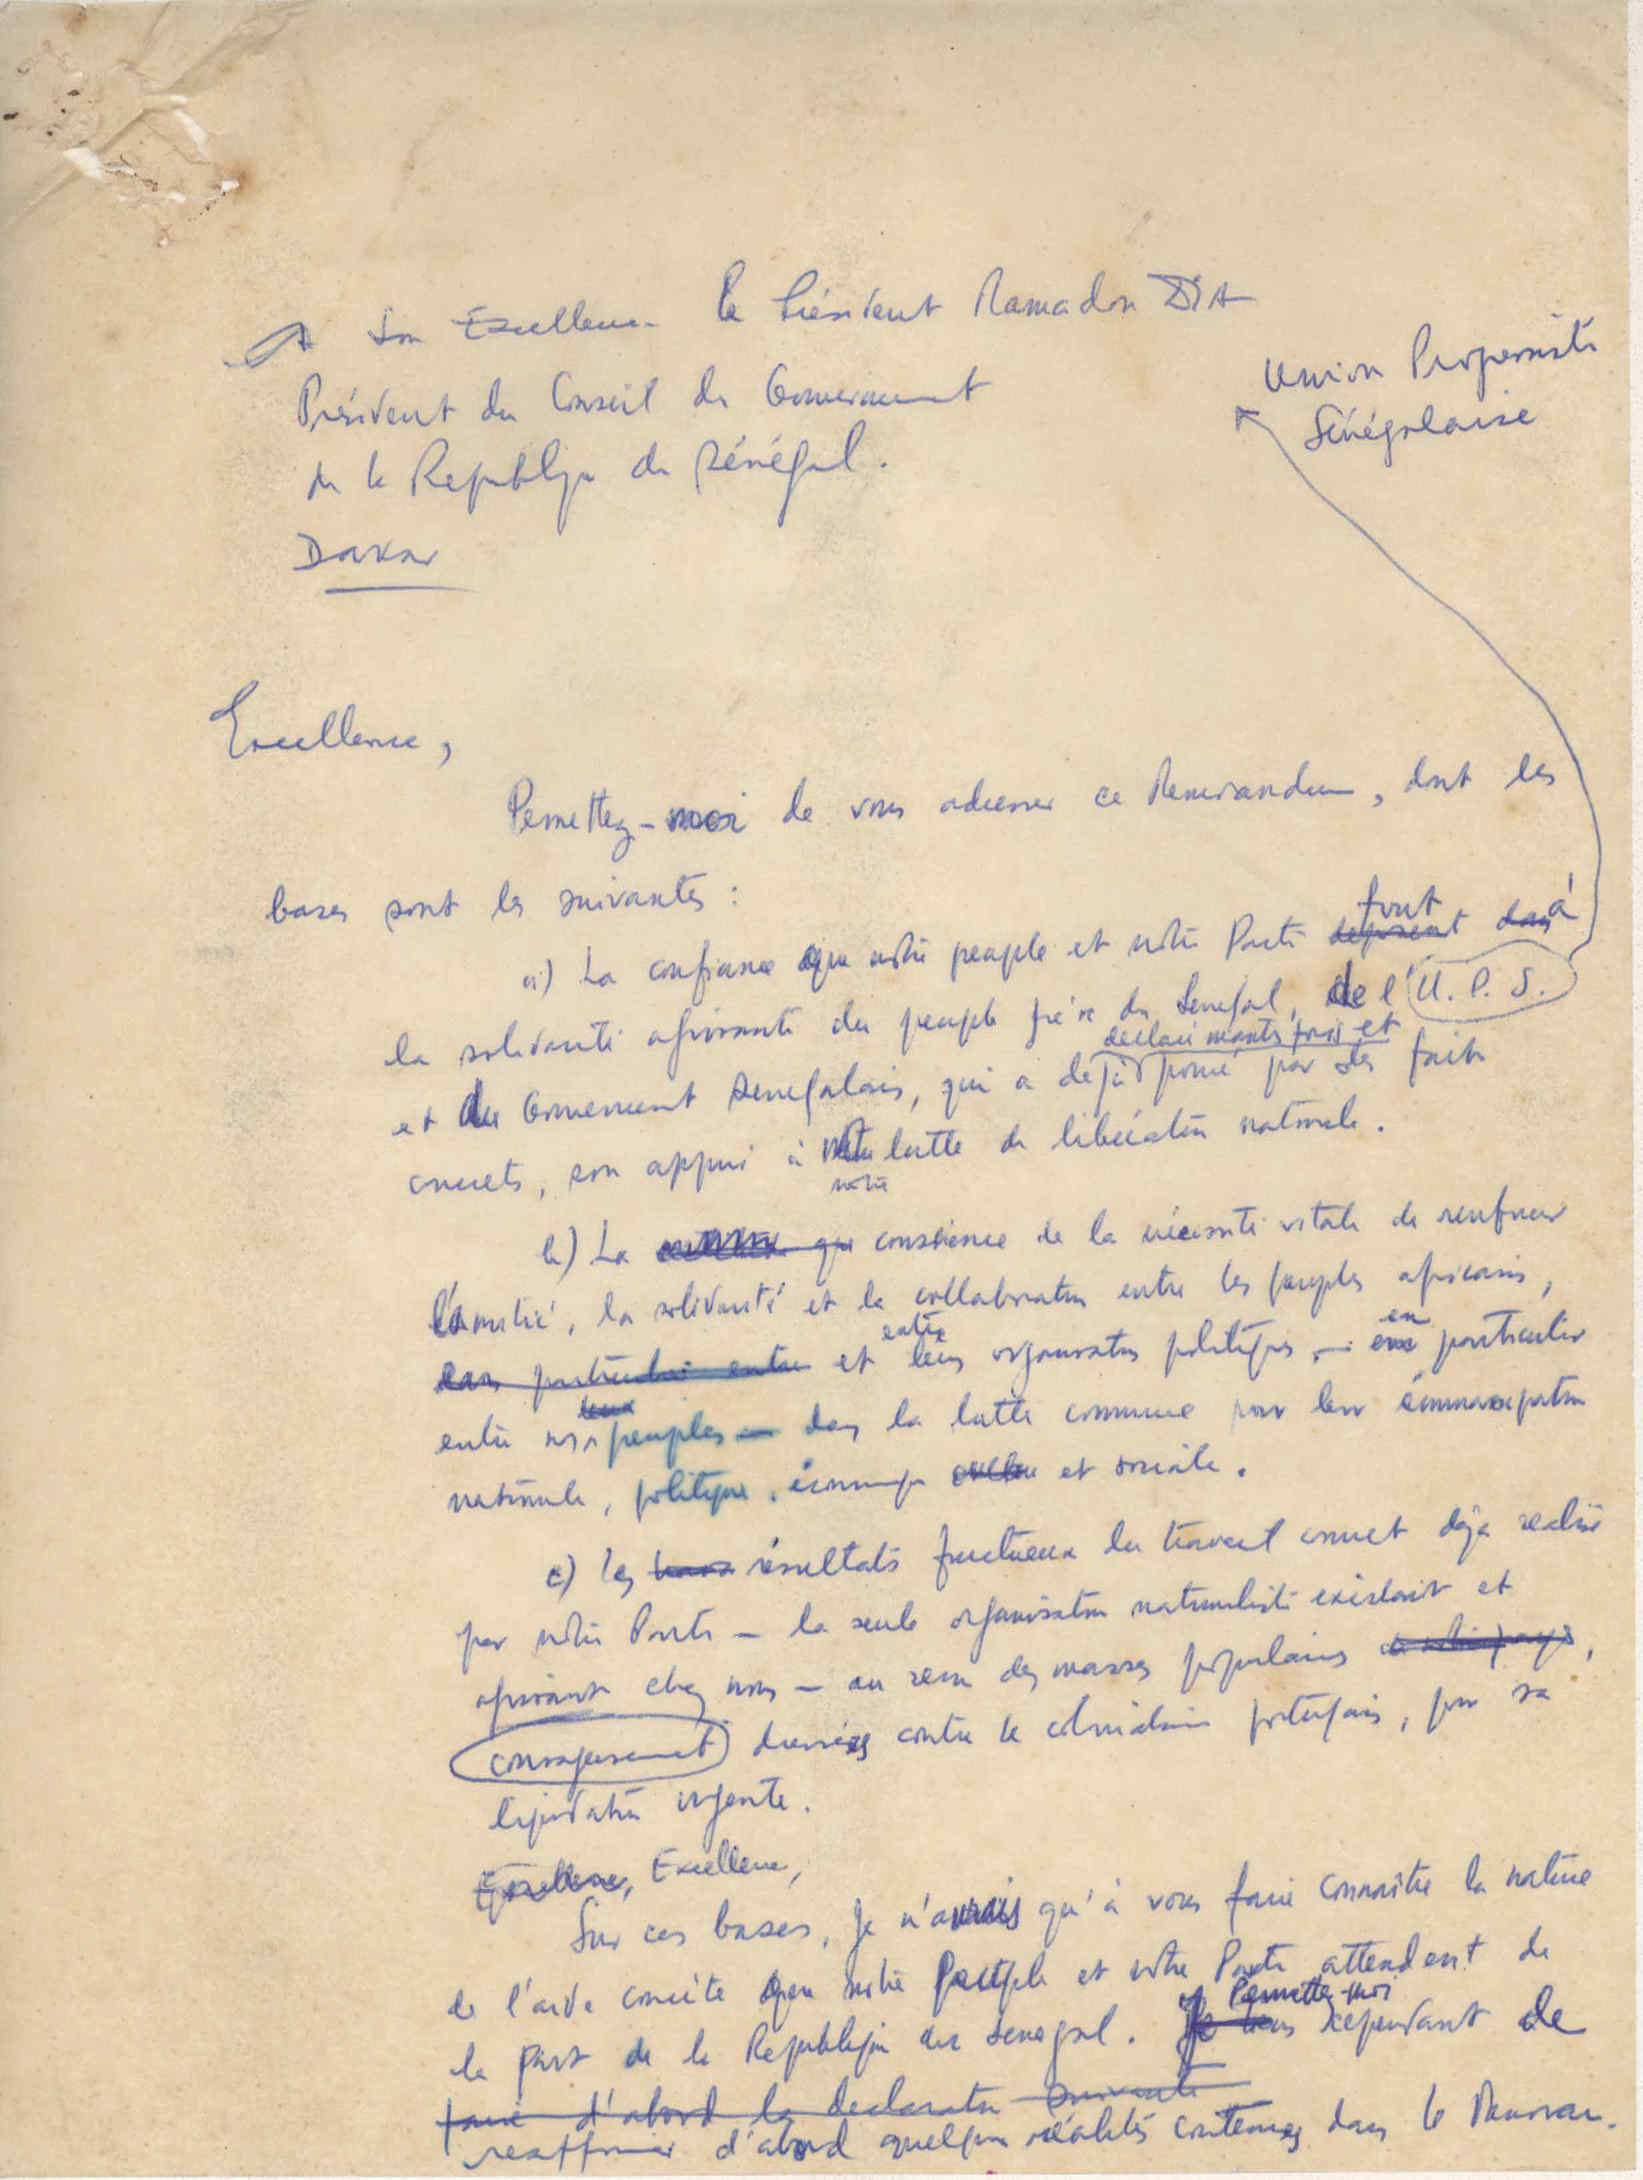 A Son Excellence le Président Mamadou DIA
Président du Conseil du Gouvernement
de la République du Sénégal.
Dakar
Union Progressiste
Sénégalaise
Excellence,
Permettez-moi de vous adresser ce Memorandum, dont les
bases sont les suivantes :
a) La confiance que notre peuple et notre Parti deposent dans font à
la solidarité agissante du peuple frère du Senegal, de l'U.P.S.
et du Gouvernement senegalais, qui a déjà declaré maintes fois et prouvé par des faits
concrets, son appui à notre lutte de libération nationale.
notre
b) La que conscience de la nécessité vitale de renforcer
l'amitié, la solidarité et la collaboration entre les peuples africains,
en particulier entre et entre leurs organisations politiques, — en particulier
entre nos peuples — dans la lutte commune pour leur émancipation
nationale, politique, économique et sociale.
c) Les résultats fructueux du travail concret déjà realisé
par notre Parti — la seule organisation nationaliste existant et
agissant chez nous — au sein des masses populaires de notre pays,
courageusement dressées contre le colonialisme portugais, pour sa
liquidation urgente.
Excellence, Excellence,
Sur ces bases, je n'aurais qu'à vous faire connaître la nature
de l'aide concrète que notre peuple et notre Parti attendent de
la part de la Republique du Senegal. Je Permettez-moi cependant de
faire d'abord la declaration suivante
reaffirmer d'abord quelques réalités contenues dans le Memoran-